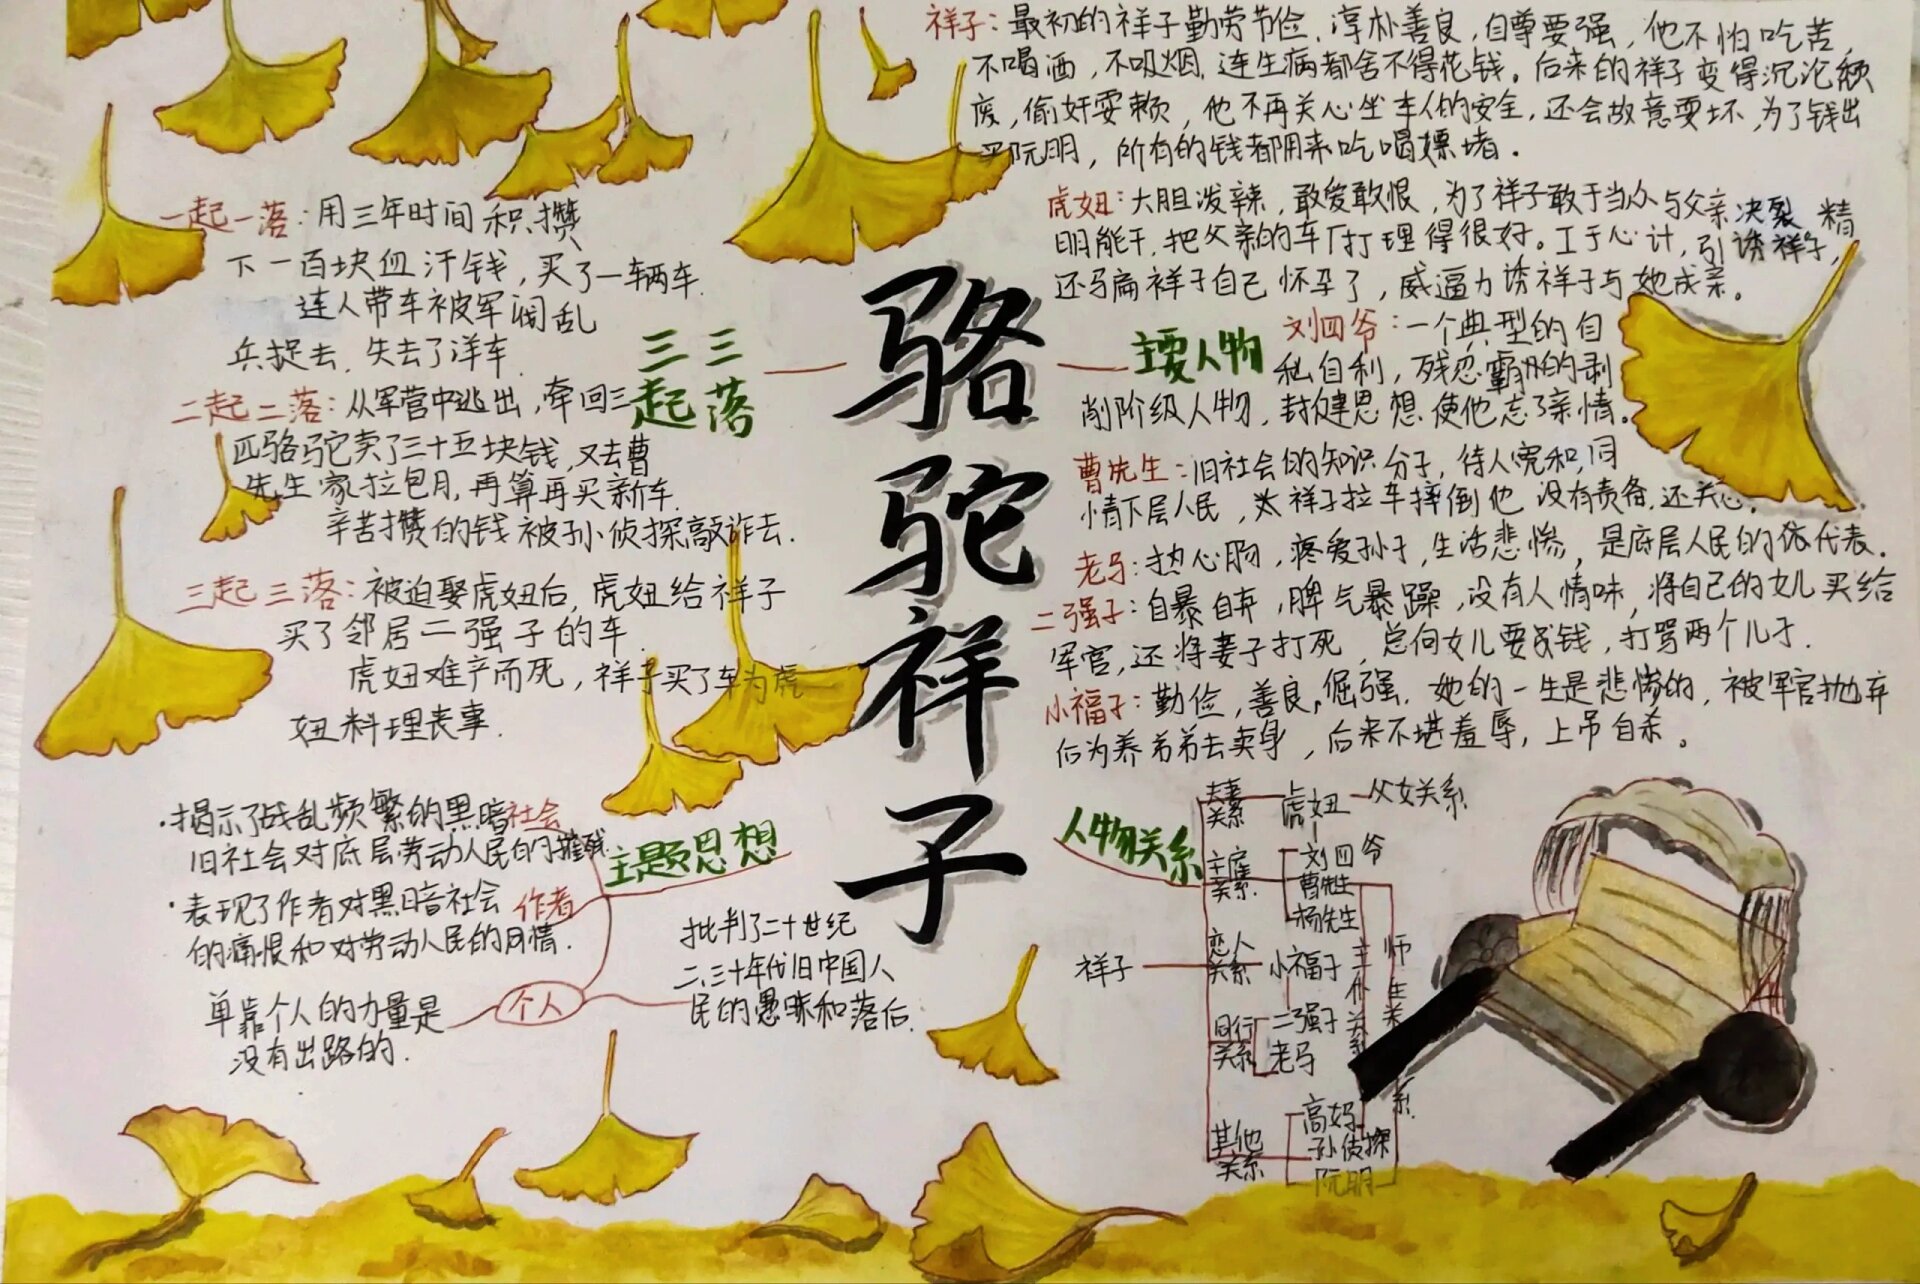 骆驼祥子
三三
起落
一起一落：用三年时间积攒
下一百块血汗钱，买了一辆车.
连人带车被军阀乱
兵捉去.失去了洋车.
二起二落：从军营中逃出，牵回三
匹骆驼卖了三十五块钱，又去曹
先生家拉包月，再算再买新车.
辛苦攒的钱被孙侦探敲诈去.
三起三落：被迫娶虎妞后，虎妞给祥子
买了邻居二强子的车.
虎妞难产而死，祥子买了车为虎
妞料理丧事.
主题思想
·揭示了战乱频繁的黑暗社会
旧社会对底层劳动人民的摧残.
·表现了作者对黑暗社会 作者
的痛恨和对劳动人民的同情.
批判了二十世纪
二、三十年代旧中国人
民的愚昧和落后.
个人
单靠个人的力量是
没有出路的.
主要人物
祥子：最初的祥子勤劳节俭，淳朴善良，自尊要强，他不怕吃苦，
不喝酒，不吸烟，连生病都舍不得花钱。后来的祥子变得沉沦颓
废，偷奸耍赖，他不再关心坐车人的安全，还会故意耍坏，为了钱出
买阮明，所有的钱都用来吃喝嫖堵。
虎妞：大胆泼辣，敢爱敢恨，为了祥子敢于当众与父亲决裂 精
明能干，把父亲的车厂打理得很好。工于心计，引诱祥子，
还马扁祥子自己怀孕了，威逼力诱祥子与她成亲。
刘四爷：一个典型的自
私自利，残忍霸的剥
削阶级人物，封健思想使他忘了亲情。
曹先生：旧社会的知识分子，待人宽和，同
情下层人民，祥子拉车摔倒他没有责备，还关心.
老马：热心肠，疼爱孙子，生活悲惨，是底层人民的代表.
二强子：自暴自弃，脾气暴躁，没有人情味，将自己的女儿买给
军官，还将妻子打死，总向女儿要钱，打骂两个儿子.
小福子：勤俭，善良，倔强.她的一生是悲惨的，被军官抛弃
后为养弟弟去卖身，后来不堪羞辱，上吊自杀。
人物关系
祥子
夫妻关系 虎妞 父女关系
主雇关系 刘四爷
曹先生
杨先生
恋人关系 小福子
同行关系 二强子
老马
其他关系 高妈
孙侦探
阮明
主仆关系
师生关系